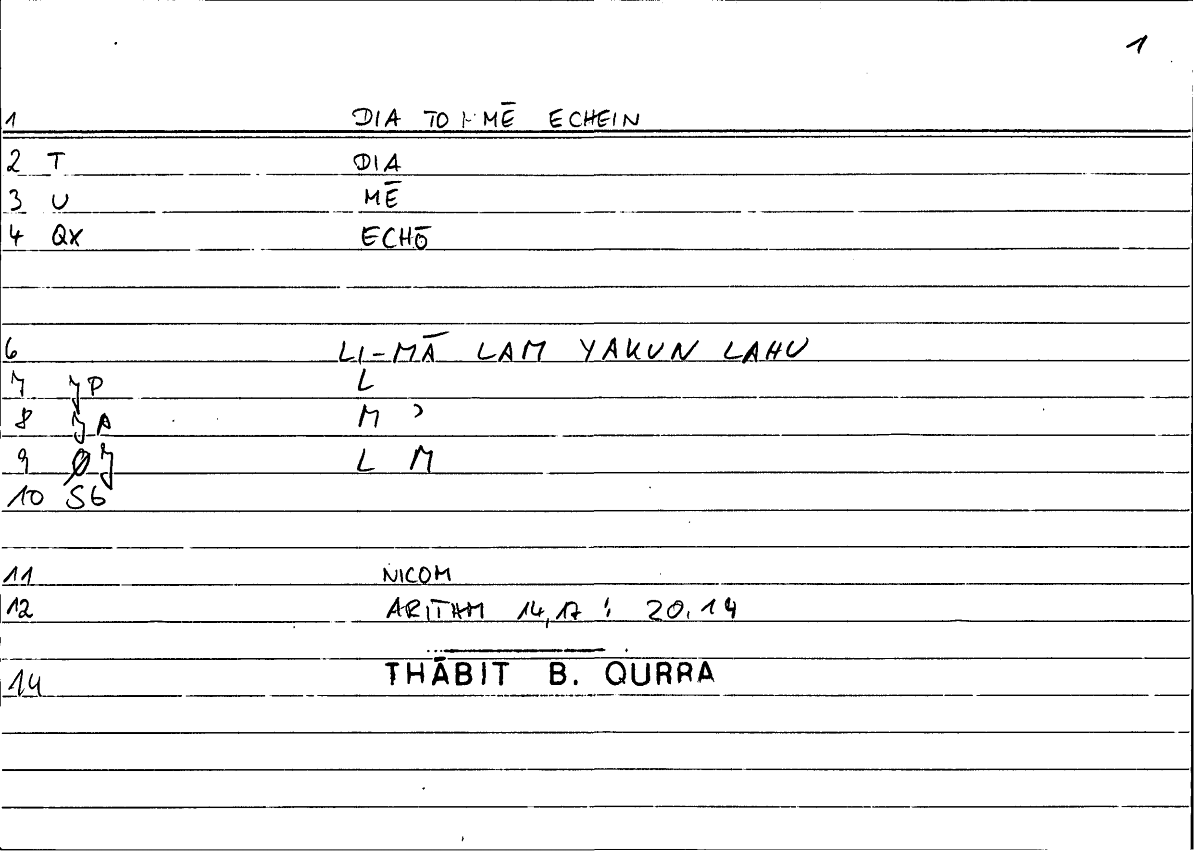 1
1 DIA TO MĒ ECHEIN
2 T DIA
3 U MĒ
4 QX ECHŌ
6 LI-MĀ LAM YAKUN LAHU
7 JP L
8 JA M ʾ
9 ØJ L M
10 S6
11 NICOM
12 ARITHM 14,17 : 20.14
14 THĀBIT B. QURRA